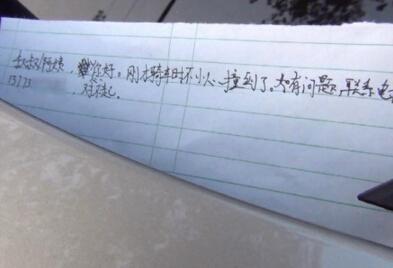 叔叔/阿姨，你好。刚才骑车时不小心撞到了。如有问题，联系电
，对不起。